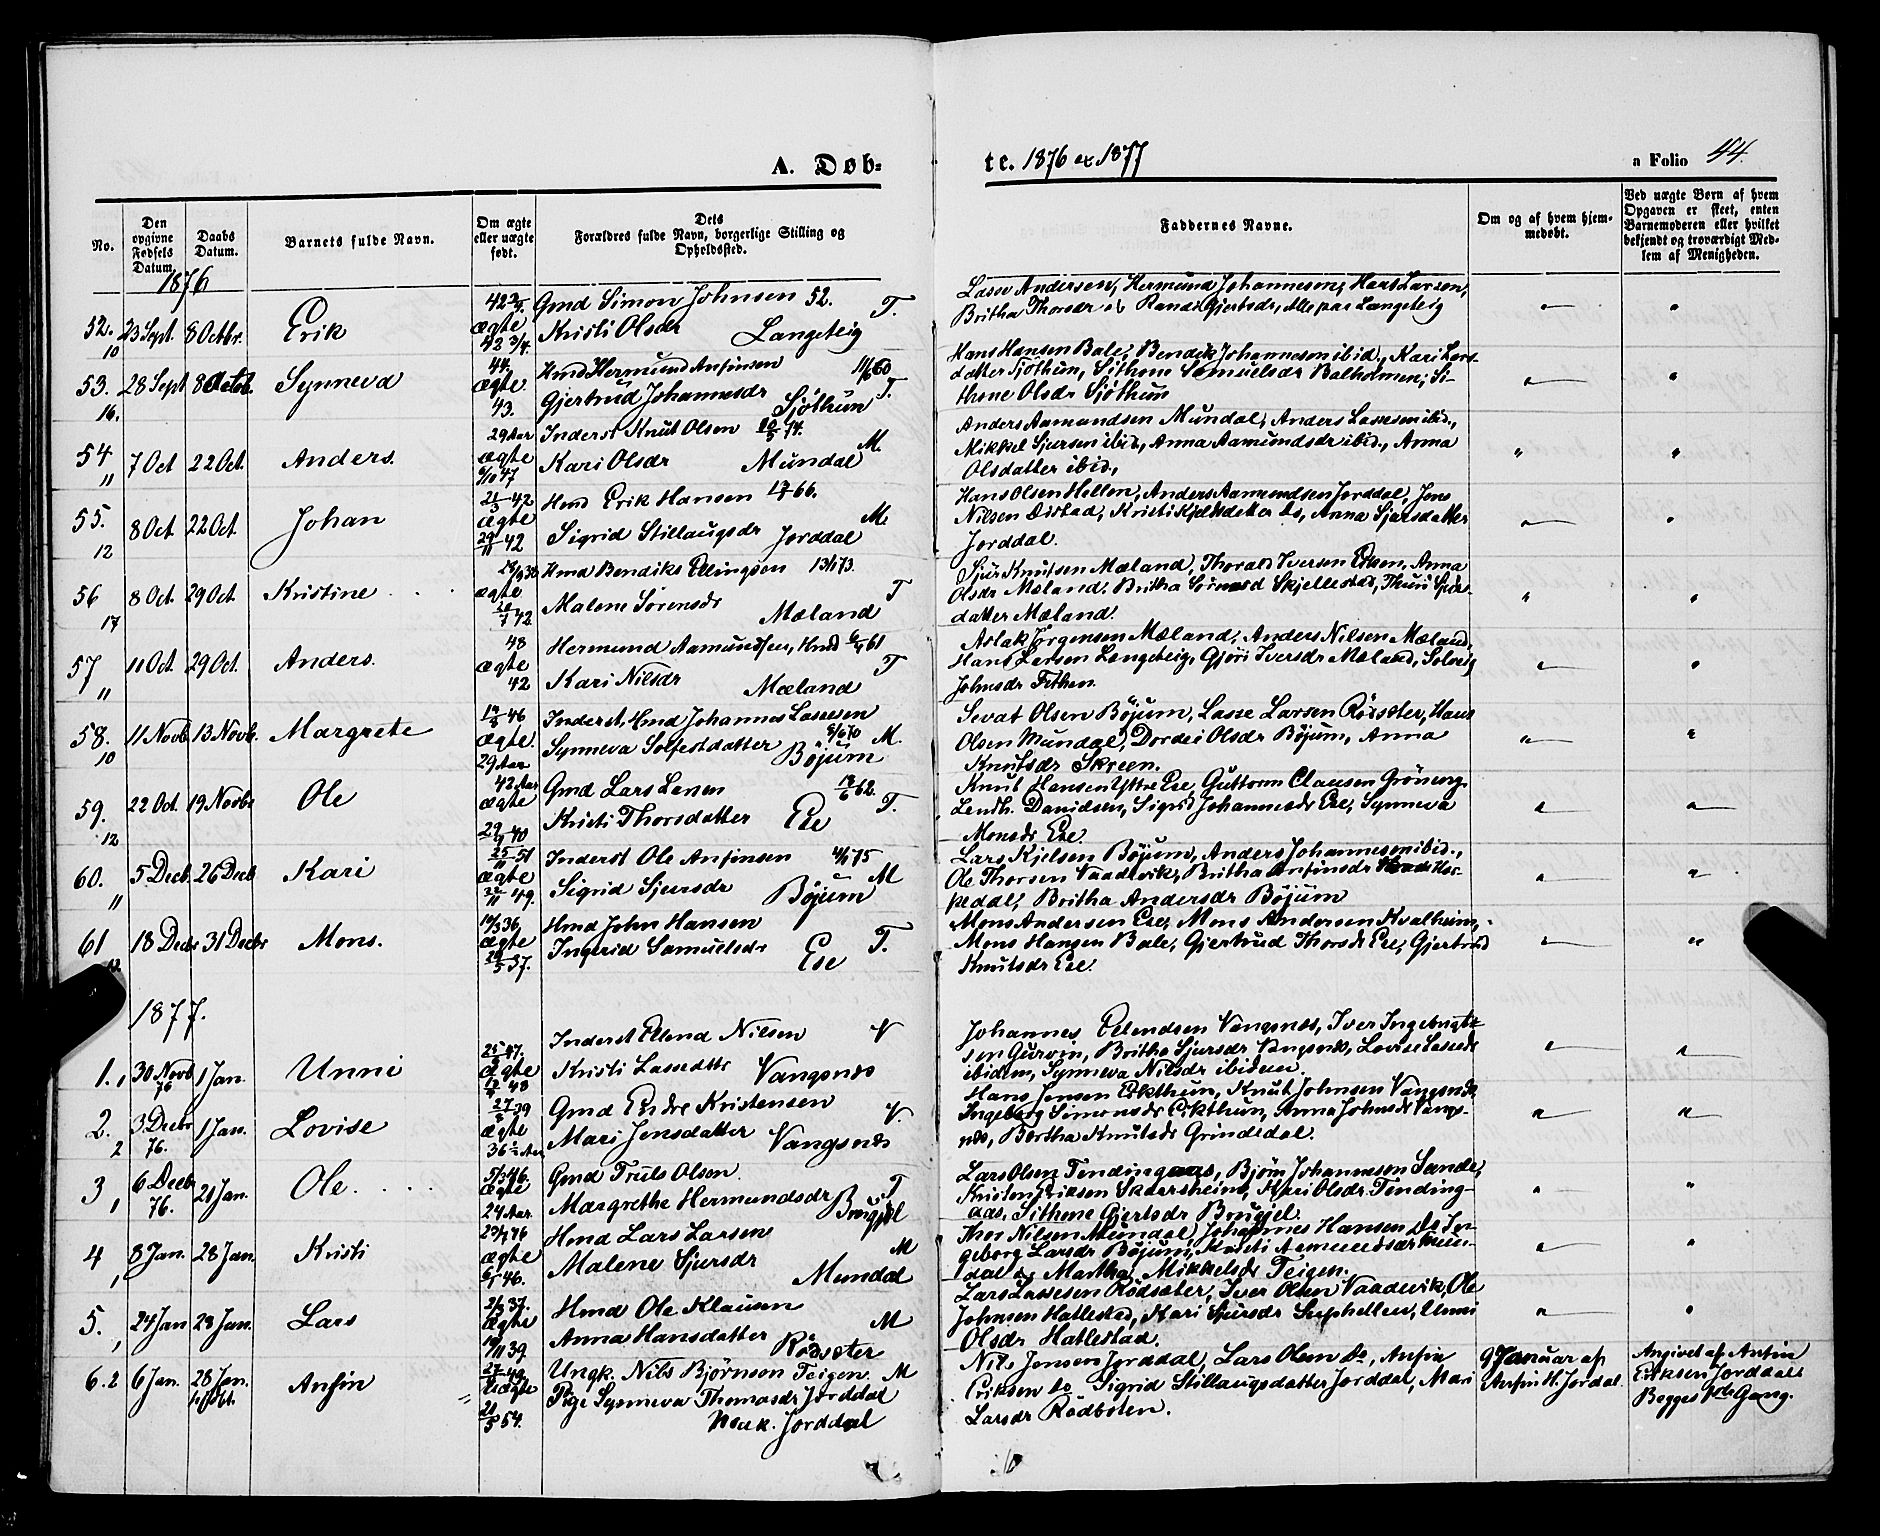 A. Døb=
te. 1876 & 1877
a Folio 44.
No.
Den opgivne Fødsels Datum.
Daabs Datum.
Barnets fulde Navn.
Om ægte eller uægte født.
Dets Forældres fulde Navn, borgerlige Stilling og Opholdssted.
Faddernes Navne.
Om og af hvem hjemmedøbt.
Ved uægte Børn af hvem Opgaven er skeet, enten Barnemoderen eller hvilket bekjendt og troværdigt Medlem af Menigheden.
1876
52. 10 23 Sept. 8 Octbr. Erik ægte 42 3/4.
Gmd Simon Johnsen 52. T.
Kristi Olsdr Langeteig
Lasse Andersen, Hermund Johannesen, Hans Larsen,
Britha Thorsdr & Randi Gjertsdr, Alle paa Langeteig
53. 16. 28 Sept 8 Octob. Synneva 44. ægte 43.
Hmd Hermund Ansinsen 11/6 60
Gjertrud Johannesdr Sjøthun T.
Hans Hansen Bale, Bendik Johannesen ibid., Kari Lars-
datter Sjøthun, Sithene Samuelsdr Balholmen, Si-
thene Olsdr Sjøthun
54 11 7 Oct 22 Oct. Anders. 29 Aar ægte 6/10 47
Inderst Knut Olsen 74. M.
Kari Olsdr Mundal
Anders Aamundsen Mundal, Anders Lassesen ibid.,
Mikkel Sjursen ibid., Anna Aamundsdr ibid., Anna
Olsdatter ibid.,
55. 12 8 Oct 22 Oct Johan 21/3 42 ægte 29/11 42
Hmd Erik Hansen 66. M.
Sigrid Stillaugsdr Jorddal
Hans Olsen Hellen, Anders Aamundsen Jorddal, Jens
Nilsen Distad, Kristi Kjelsdatter do, Anna Sjursdatter
Jorddal.
56 17 8 Oct. 29 Oct. Kristine ægte 20/7 42
Hmd Bendiks Ellingsen 13/1 73.
Malene Sørensdr Mæland T
Sjur Knutsen Mæland, Thorald Iversen Eitsen, Anna
Olsdr Mæland, Britha Sørensd Skjellestad, Thuri Sjurs-
datter Mæland.
57 11 11 Oct. 29 Oct. Anders. 48 ægte 42
Hermund Aamundsen, Hmd 61
Kari Nilsdr Mæland T
Aslak Jørgensen Mæland, Anders Nilsen Mæland,
Hans Larsen Langeteig, Gjøri Iversdr Mæland, Solveig
Johnsdr Fethen.
58. 10 11 Novb. 13 Novb. Margrete 46 ægte. 29 Aar
Inderst, Hmd Johannes Lassesen 8/6 70
Synneva Solfestdatter Bøjum M.
Sevat Olsen Bøjum, Lasse Larsen Rødseter, Hans
Olsen Mundal, Dordei Olsdr Bøjum, Anna
Knutsdr Skreen.
59. 12 22 Oct. 19 Novbr Ole 42 Aar ægte 40
Gmd Lars Larsen 62.
Kristi Thorsdatter Ese T.
Knut Hansen Yttre Ese, Guttorm Clausen Grønvig.
Lendh. Danidsen, Sigrid Johannesdr Ese, Synneva
Monsdr Ese.
60. 11 5 Decb. 26 Decb Kari 25/11 51 ægte 49.
Inderst Ole Ansinsen 4/1 75
Sigrid Sjursdr Bøjum M
Lars Kjelsen Bøjum, Anders Johannesen ibid.,
Ole Thorsen Vaadevik, Britha Ansinsdr Hor-
pedal, Britha Andersdr Bøjum
61 12. 18 Decbr 31 Decbr Mons. 14/3 36 ægte 37.
Hmd John Hansen
Ingerid Samuelsdr Ese T.
Mons Andersen Ese, Mons Andersen Kvalheim,
Mons Hansen Bale, Gjertrud Thorsdr Ese, Gjertrud
Knutsdr Ese.
1877.
1. 1 30 Novb 76 1 Jan. Unni 47. ægte 48
Inderst Erlend Nilsen V
Kristi Lassedttr Vangsnes
Johannes Erlendsen Vangsnes, Iver Ingebrigt-
sen Gurvin, Britha Sjursdr Vangsnes, Lovise Lassedr
ibidem, Synneva Nilsdr ibidem.
2. 2 3 Decbr 76. 1 Jan. Lovise 39 ægte 36 1/2 Aar
Gmd Endre Kristensen V.
Mari Jensdatter Vangsnes
Hans Jensen Eikthun, Knut Johnsen Vangsnes,
Ingeborg Simonsdr Eikthun, Anna Johnsdr Vangs-
nes, Bertha Knutsdr Grindedal.
3 1 6 Decbr 76. 21 Jan. Ole. 5/3 46. ægte 24 Aar
Gmd Truls Olsen.
Margrethe Hermundsdr T
Lars Olsen Tendingaas, Bjørn Johannesen Sande,
Kristen Eriksen Skarsheim, Kari Olsdr Tending-
aas, Sithene Gjertsdr Brugjel.
4 1 8 Jan. 28 Jan. Kristi ægte 46.
Hmd Lars Larsen
Malene Sjursdr Mundal M
Thor Nilsen Mundal, Johannes Hansen do In-
geborg Larsdr Bøjum, Kristi Aamundsdr Mun-
dal & Martha Mikkelsdr Teigen.
5. 1 24 Jan 28 Jan. Lars 2/3 37. ægte 39.
Hmd Ole Klausen M
Anna Hansdatter Rødseter
Lars Lassesen Rødseter, Iver Olsen Vaadevik, Ole
Johnsen Hatlestad, Kari Sjursdr Suphellen, Unni
Olsdr Hatlestad.
6. 2 6 Jan. 28 Jan. Ansin 49 Uægte 21/5 54.
Ungk. Nils Bjørnson Teigen M
Pige Synneva Thomasdr Jorddal
Jorddal
Nils Jensen Jorddal, Lars Olsen do, Ansin
Eriksen do Sigrid Stillaugsdatter Jorddal, Mari
Larsdr Rødboten.
9 Januar af
Ansin H. Jordal
Angivet af Ansin
Eriksen Jorddal
Begges 1ste Gang.